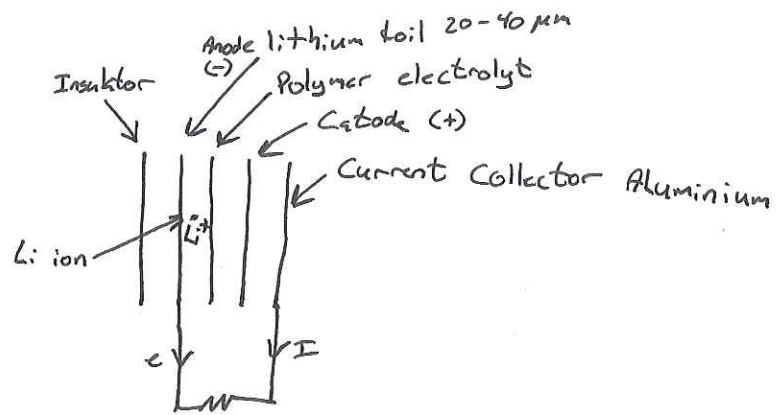 Anode lithium foil 20-40 μm
(-)
Insulator
Polymer electrolyt
Catode (+)
Current Collector Aluminium
Li+
Li ion
e
I